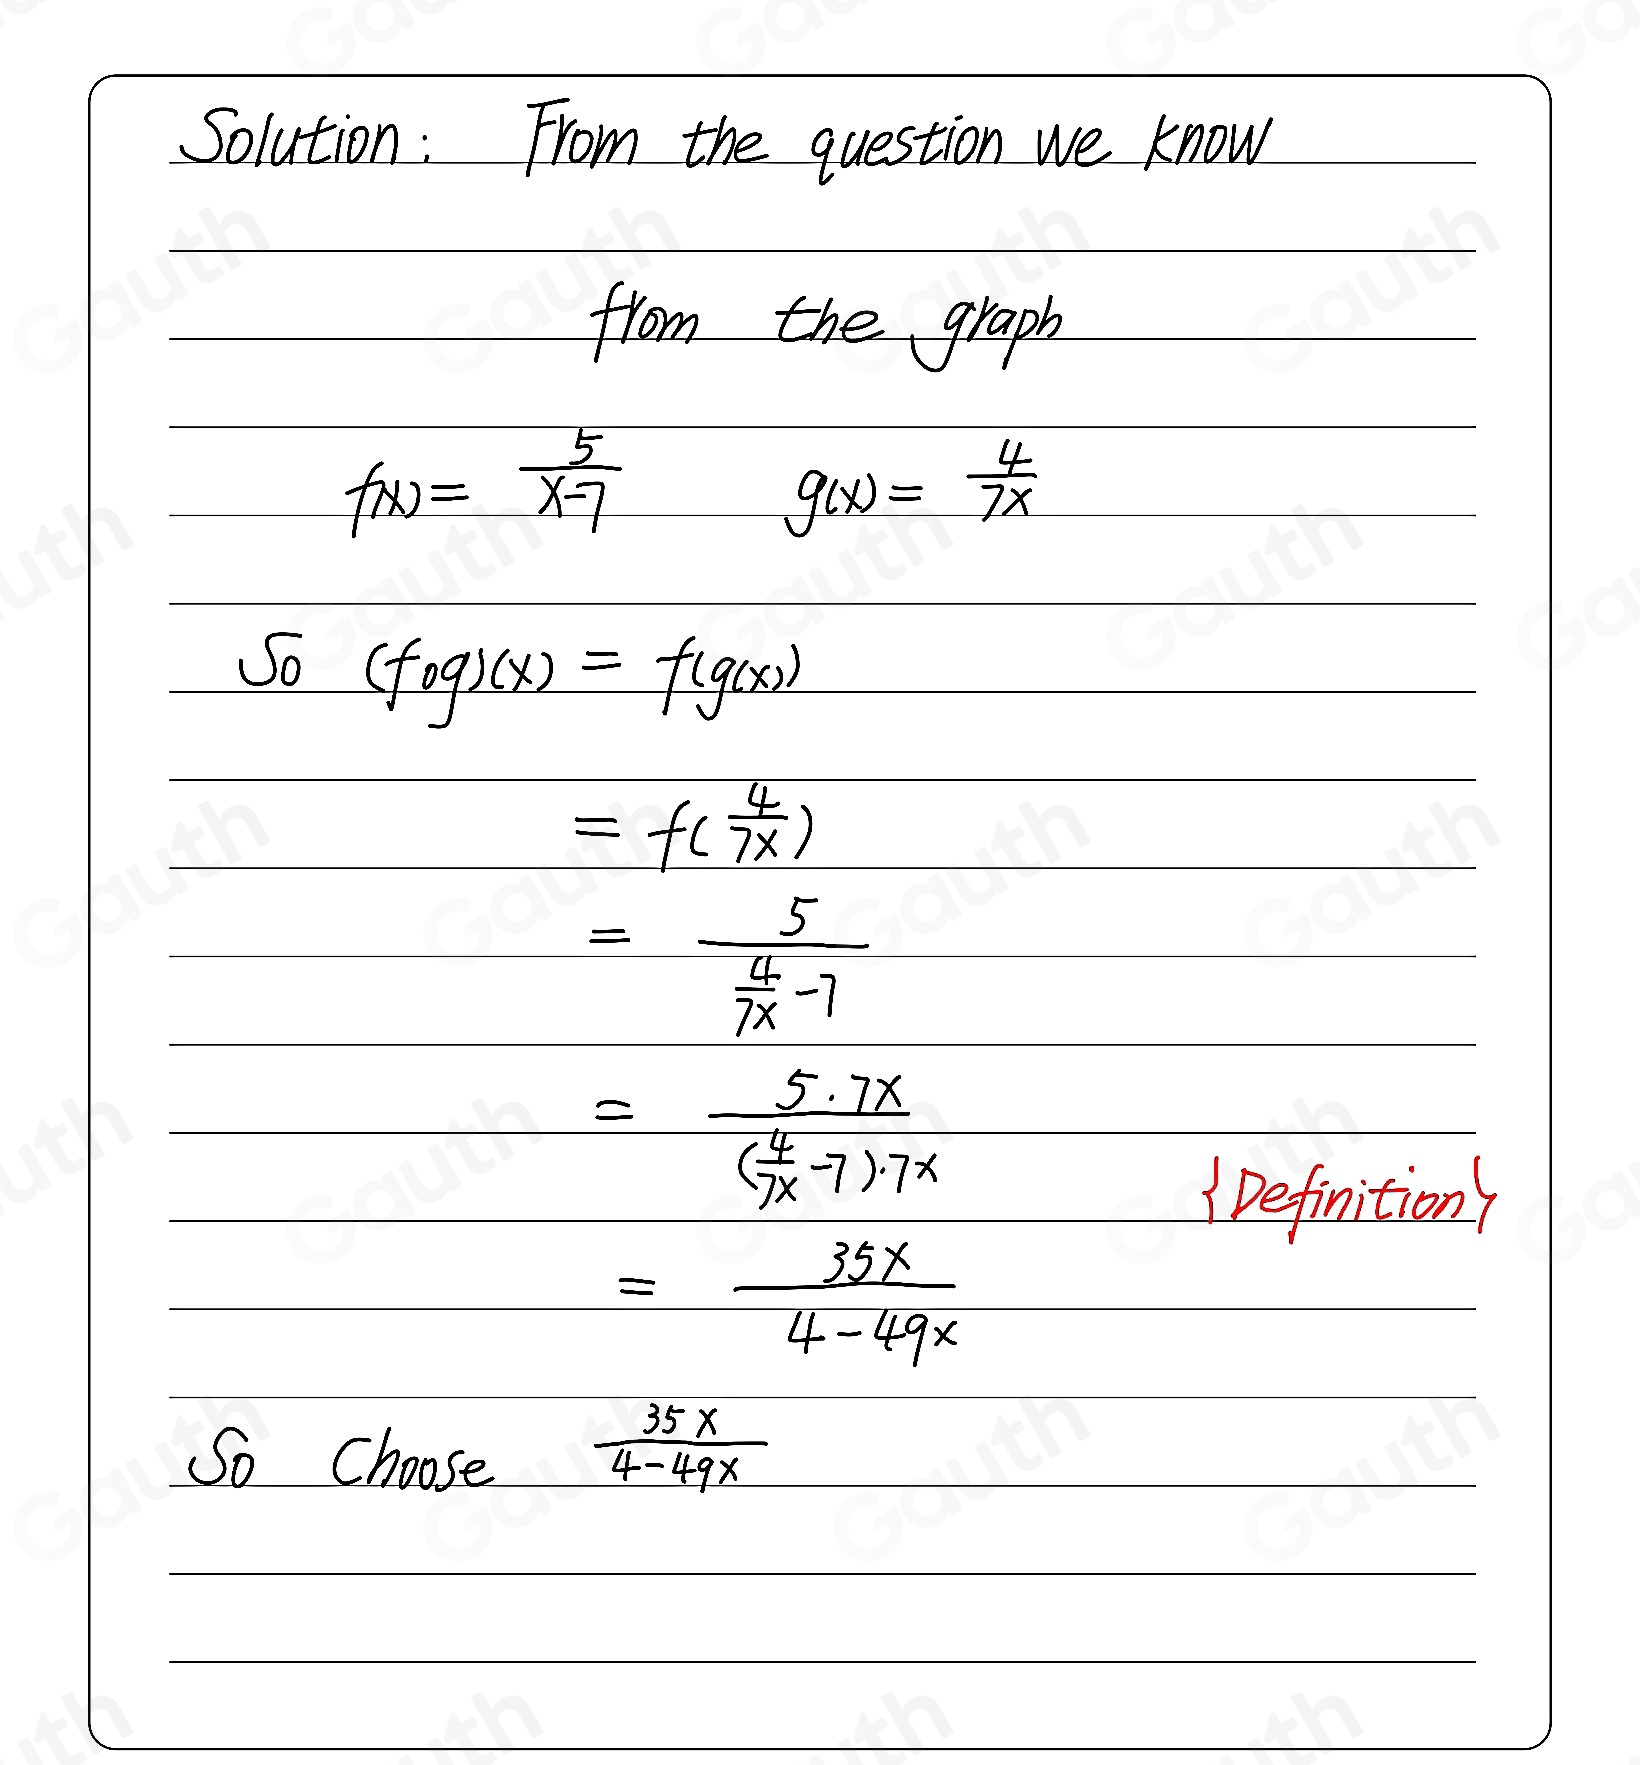 Solution: From the question we know
from the graph
f(x) = 5/(x-7) g(x) = 4/(7x)
So (fog)(x) = f(g(x))
= f(4/(7x))
= 5/(4/(7x) - 7)
= (5·7x)/((4/(7x) - 7)·7x)
{Definition}
= 35x/(4-49x)
So Choose 35x/(4-49x)
Gauth